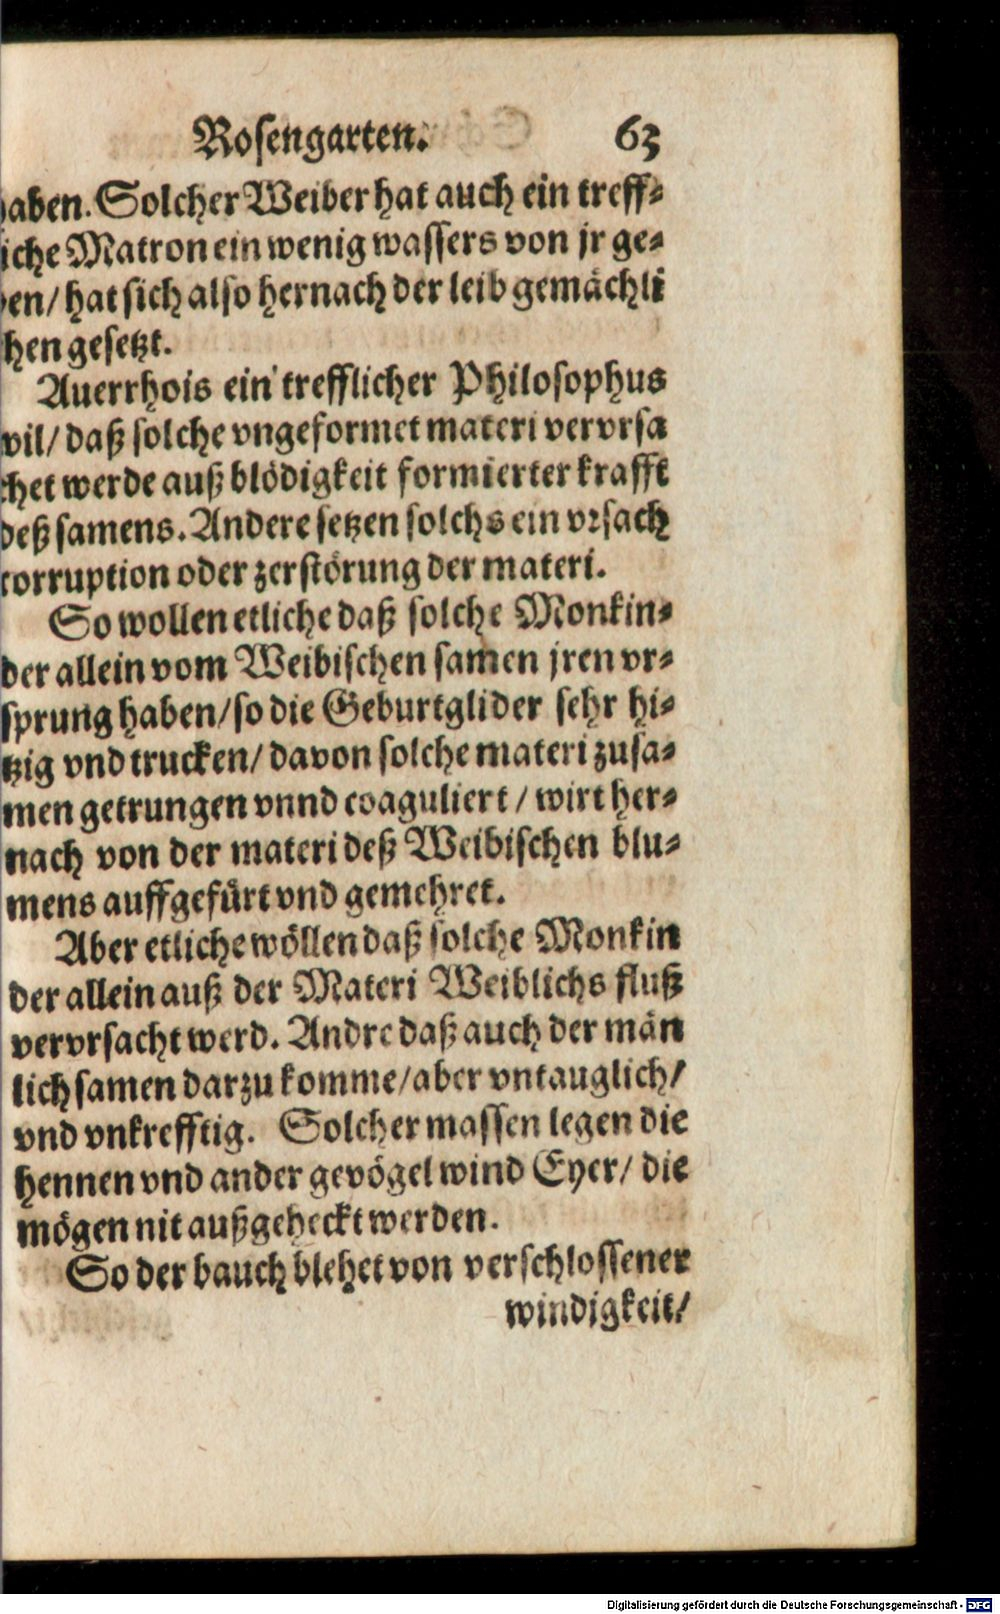 Rosengarten. 63
haben. Solcher Weiber hat auch ein treff⸗
iche Matron ein wenig wassers von jr ge⸗
en/ hat sich also hernach der leib gemächli
hen gesetzt.
Auerrhois ein trefflicher Philosophus
wil/ daß solche vngeformet materi vervrsa
chet werde auß blödigkeit formierter krafft
deß samens. Andere setzen solchs ein vrsach
corruption oder zerstörung der materi.
So wollen etliche daß solche Monkin⸗
der allein vom Weibischen samen jren vr⸗
sprung haben/ so die Geburtglider sehr hi⸗
tzig vnd trucken/ davon solche materi zusa⸗
men getrungen vnnd coaguliert / wirt her⸗
nach von der materi deß Weibischen blu⸗
mens auffgefürt vnd gemehret.
Aber etliche wöllen daß solche Monkin
der allein auß der Materi Weiblichs fluß
vervrsacht werd. Andre daß auch der män
lich samen darzu komme/ aber vntauglich/
vnd vnkrefftig. Solcher massen legen die
hennen vnd ander gevögel wind Eyer/ die
mögen nit außgeheckt werden.
So der bauch blehet von verschlossener
windigkeit/
Digitalisierung gefördert durch die Deutsche Forschungsgemeinschaft - DFG